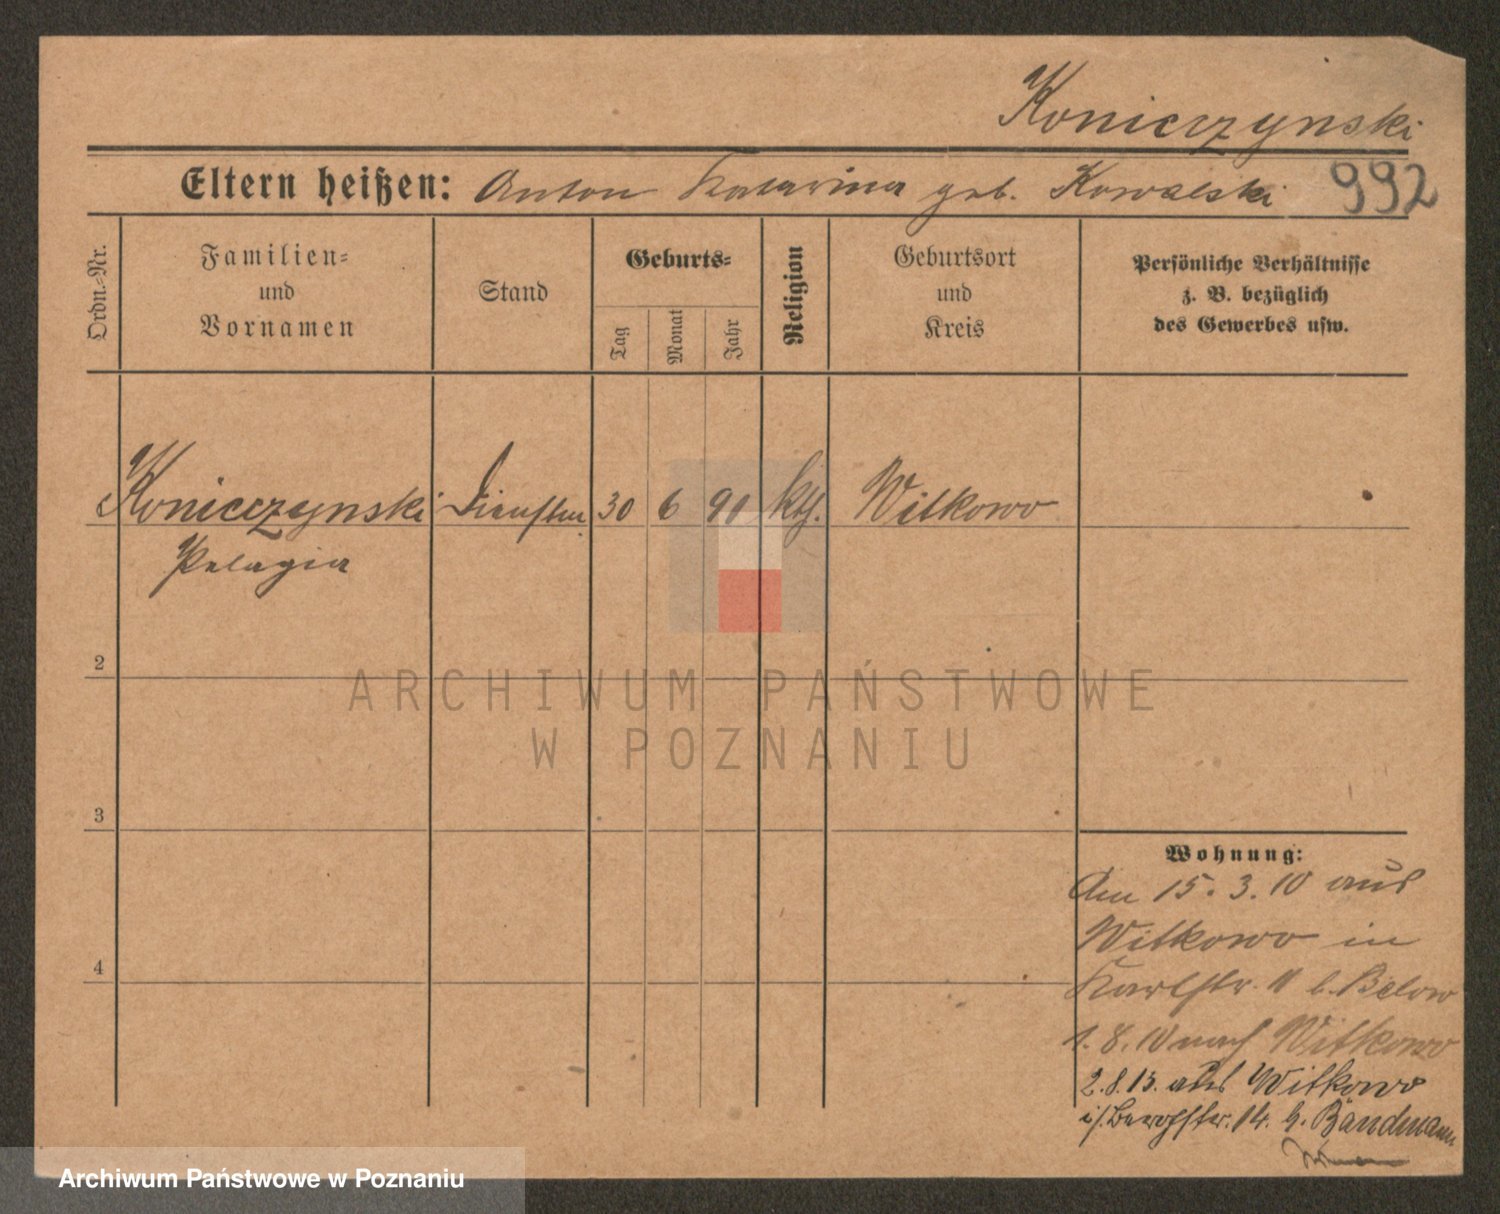 Konieczynski
Eltern heißen: Anton Katarina geb. Kowalski 992
Ordn.-Nr.
Familien-
und
Vornamen
Stand
Geburts-
Tag
Monat
Jahr
Religion
Geburtsort
und
Kreis
Persönliche Verhältnisse
z. B. bezüglich
des Gewerbes usw.
Konieczynski 30 6 91 kth. Witkowo
Pelagia
2
3
4
Wohnung:
Am 15.3.10 aus
Witkowo in
Karlstr. 11 b. Below
1.8.10 nach Witkowo
2.8.13. aus Witkowo
14. b. Bandmann
ARCHIWUM PAŃSTWOWE
W POZNANIU
Archiwum Państwowe w Poznaniu